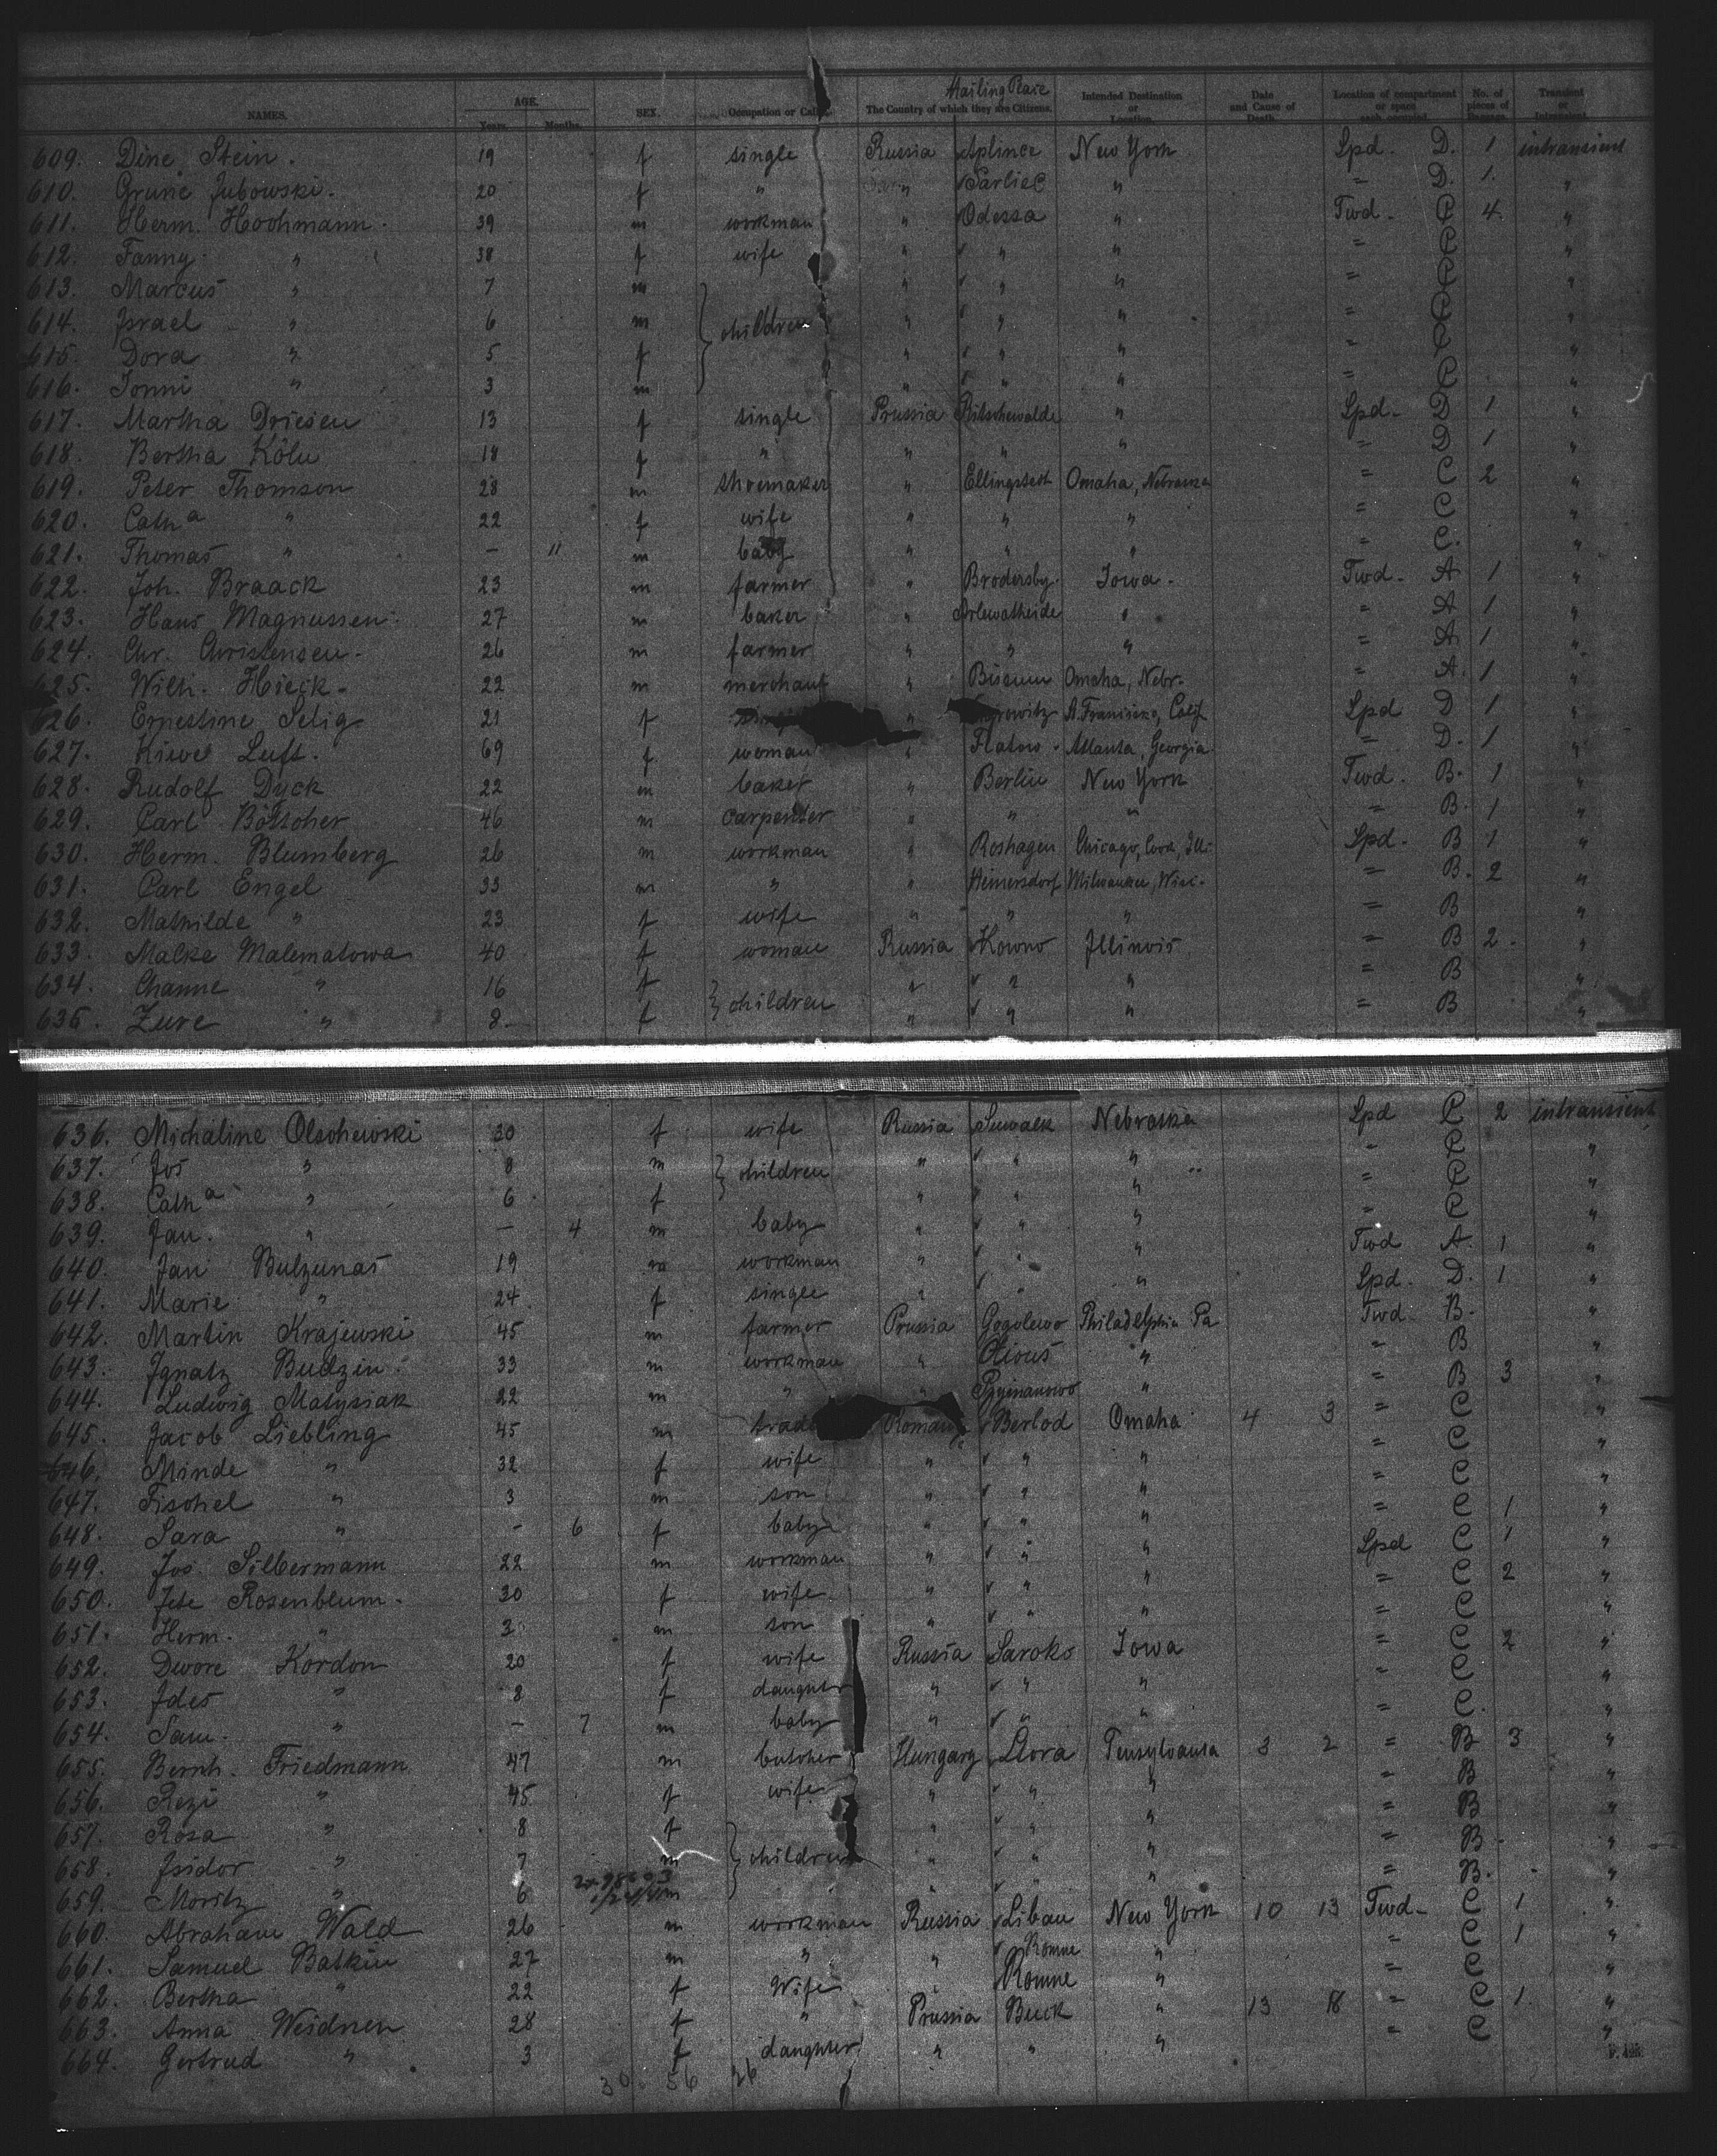 Hailing Place
NAMES. AGE. Years. Months. SEX. Occupation or The Country of which they are Citizens. Intended Destination or Location. Date and Cause of Death. Location of compartment or space each occupied. No. of pieces of Baggage. Transient or Intransient.
609. Dine Stein. 19 f single Russia New York Spd. D. 1 intransient
610. Grune Jubowski. 20 f " " " = D. 1. "
611. Herm. Hochmann. 39 m workman " Odessa " Twd. C 4. "
612. Fanny " 38 f wife " " " = C "
613. Marcus " 7 m " " " = C "
614. Israel " 6 m children " " " = C "
615. Dora " 5 f " " " = C "
616. " 3 m " " " = C "
617. Martha Driesen 13 f single Prussia " Spd. D 1 "
618. Bertha Köln 18 f " " " " = D 1 "
619. Peter Thomson 28 m shoemaker " Ellingstedt Omaha, Nebraska = C 2 "
620. Cath a " 22 f wife " " " = C "
621. Thomas " – 11 m baby " " " = C. "
622. Joh. Braack 23 m farmer " Brodersby. Iowa. Twd. A 1 "
623. Hans Magnussen. 27 m baker " " = A 1 "
624. Chr. Christensen. 26 m farmer " " " = A 1 "
625. Wilh. Hieck. 22 m merchant " Büsum Omaha, Nebr. = A. 1 "
626. Ernestine Selig. 21 f " Calif Spd D 1 "
627. Kiwe Luft. 69 f. woman " Flatow. Atlanta, Georgia = D. 1 "
628. Rudolf Dyck 22 m baker " Berlin New York Twd. B. 1 "
629. Carl Böttcher 46 m carpenter " " " = B. 1 "
630. Herm. Blumberg 26 m workman " Roshagen Chicago, Cook, Ill. Spd. B 1 "
631. Carl Engel 33 m " " Heinersdorf Milwaukee, Wisc. = B. 2 "
632. Mathilde " 23 f wife " " " = B "
633. Malke Malematowa 40 f woman Russia Kowno Illinois = B 2. "
634. Channe " 16 f children " " " = B "
635. Zure " 8 f " " " = B "
636. Michaline Olschewski 30 f wife Russia Suwalk Nebraska Spd C 2 intransient
637. Jos " 8 m children " " " = C "
638. Cath a " 6 f " " " = C "
639. Jan. " – 4 m baby " " " = C "
640. Jan Bulzunas 19 m workman " " " Twd A. 1 "
641. Marie " 24 f single " " " Spd. D. 1 "
642. Martin Krajewski 45 m farmer Prussia Gogolewo Philadelphia Pa Twd B. "
643. Ignatz Budzin. 33 m workman " " = B "
644. Ludwig Matysiak 22 m " " " = B 3 "
645. Jacob Liebling 45 m Berlod Omaha 4 3 = C "
646. Minde " 32 f wife " " " = C "
647. Fischel " 3 m son " " " = C "
648. Sara " – 6 f baby " " " = C 1 "
649. Jos. Silbermann 22 m workman " " " Spd C 1 "
650. Jete Rosenblum. 30 f wife " " " = C 2 "
651. Herm. " 3 m son " " " = C "
652. Dwore Kordon 20 f wife Russia Saroko Iowa = C 2 "
653. Ides " 8 f daughter " " " = C "
654. Sam. " – 7 m baby " " " = C. "
655. Bernh. Friedmann 47 m butcher Hungary Pensylvania 3 2 = B 3 "
656. Rezi " 45 f wife " " " = B "
657. Rosa " 8 f " " " = B "
658. Isidor " 7 m children " " " = B "
659. Moritz " 6 m " " " = B. "
660. Abraham Wald 26 m workman Russia Libau New York 10 13 Twd. C 1 "
661. Samuel Batkin 27 m " " Romne " = C 1 "
662. Bertha " 22 f Wife " Romne " = C "
663. Anna Weidnen 28 f " Prussia Buck " 13 18 = C 1. "
664. Gertrud " 3 f daughter " " " = C "